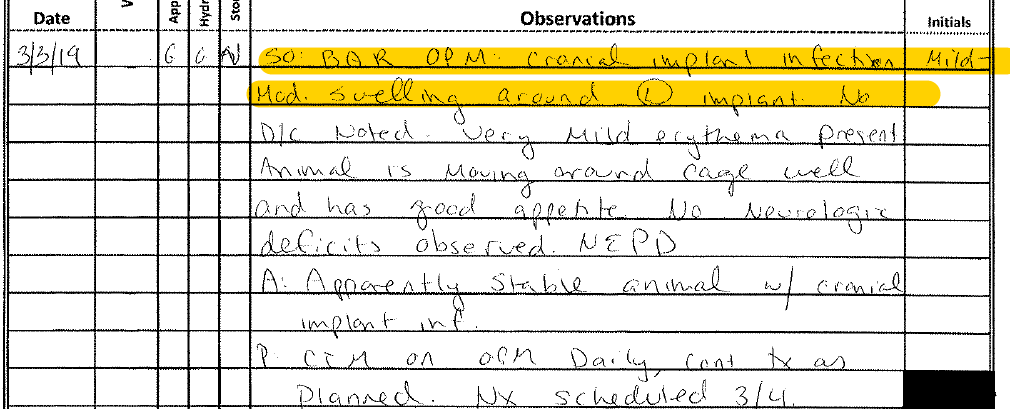 Date V App Hydr Stoo Observations Initials
3/3/19 G G N SO: BAR OPM: Cranial implant infection Mild-
Mod. swelling around Ⓛ implant. No
D/C Noted. Very Mild erythema present
Animal is Moving around cage well
and has good appetite. No Neurologic
deficits observed. NEPD
A: Apparently Stable animal w/ cranial
implant inf.
P: CTM on OPM Daily, cont tx as
Planned. Nx scheduled 3/4.